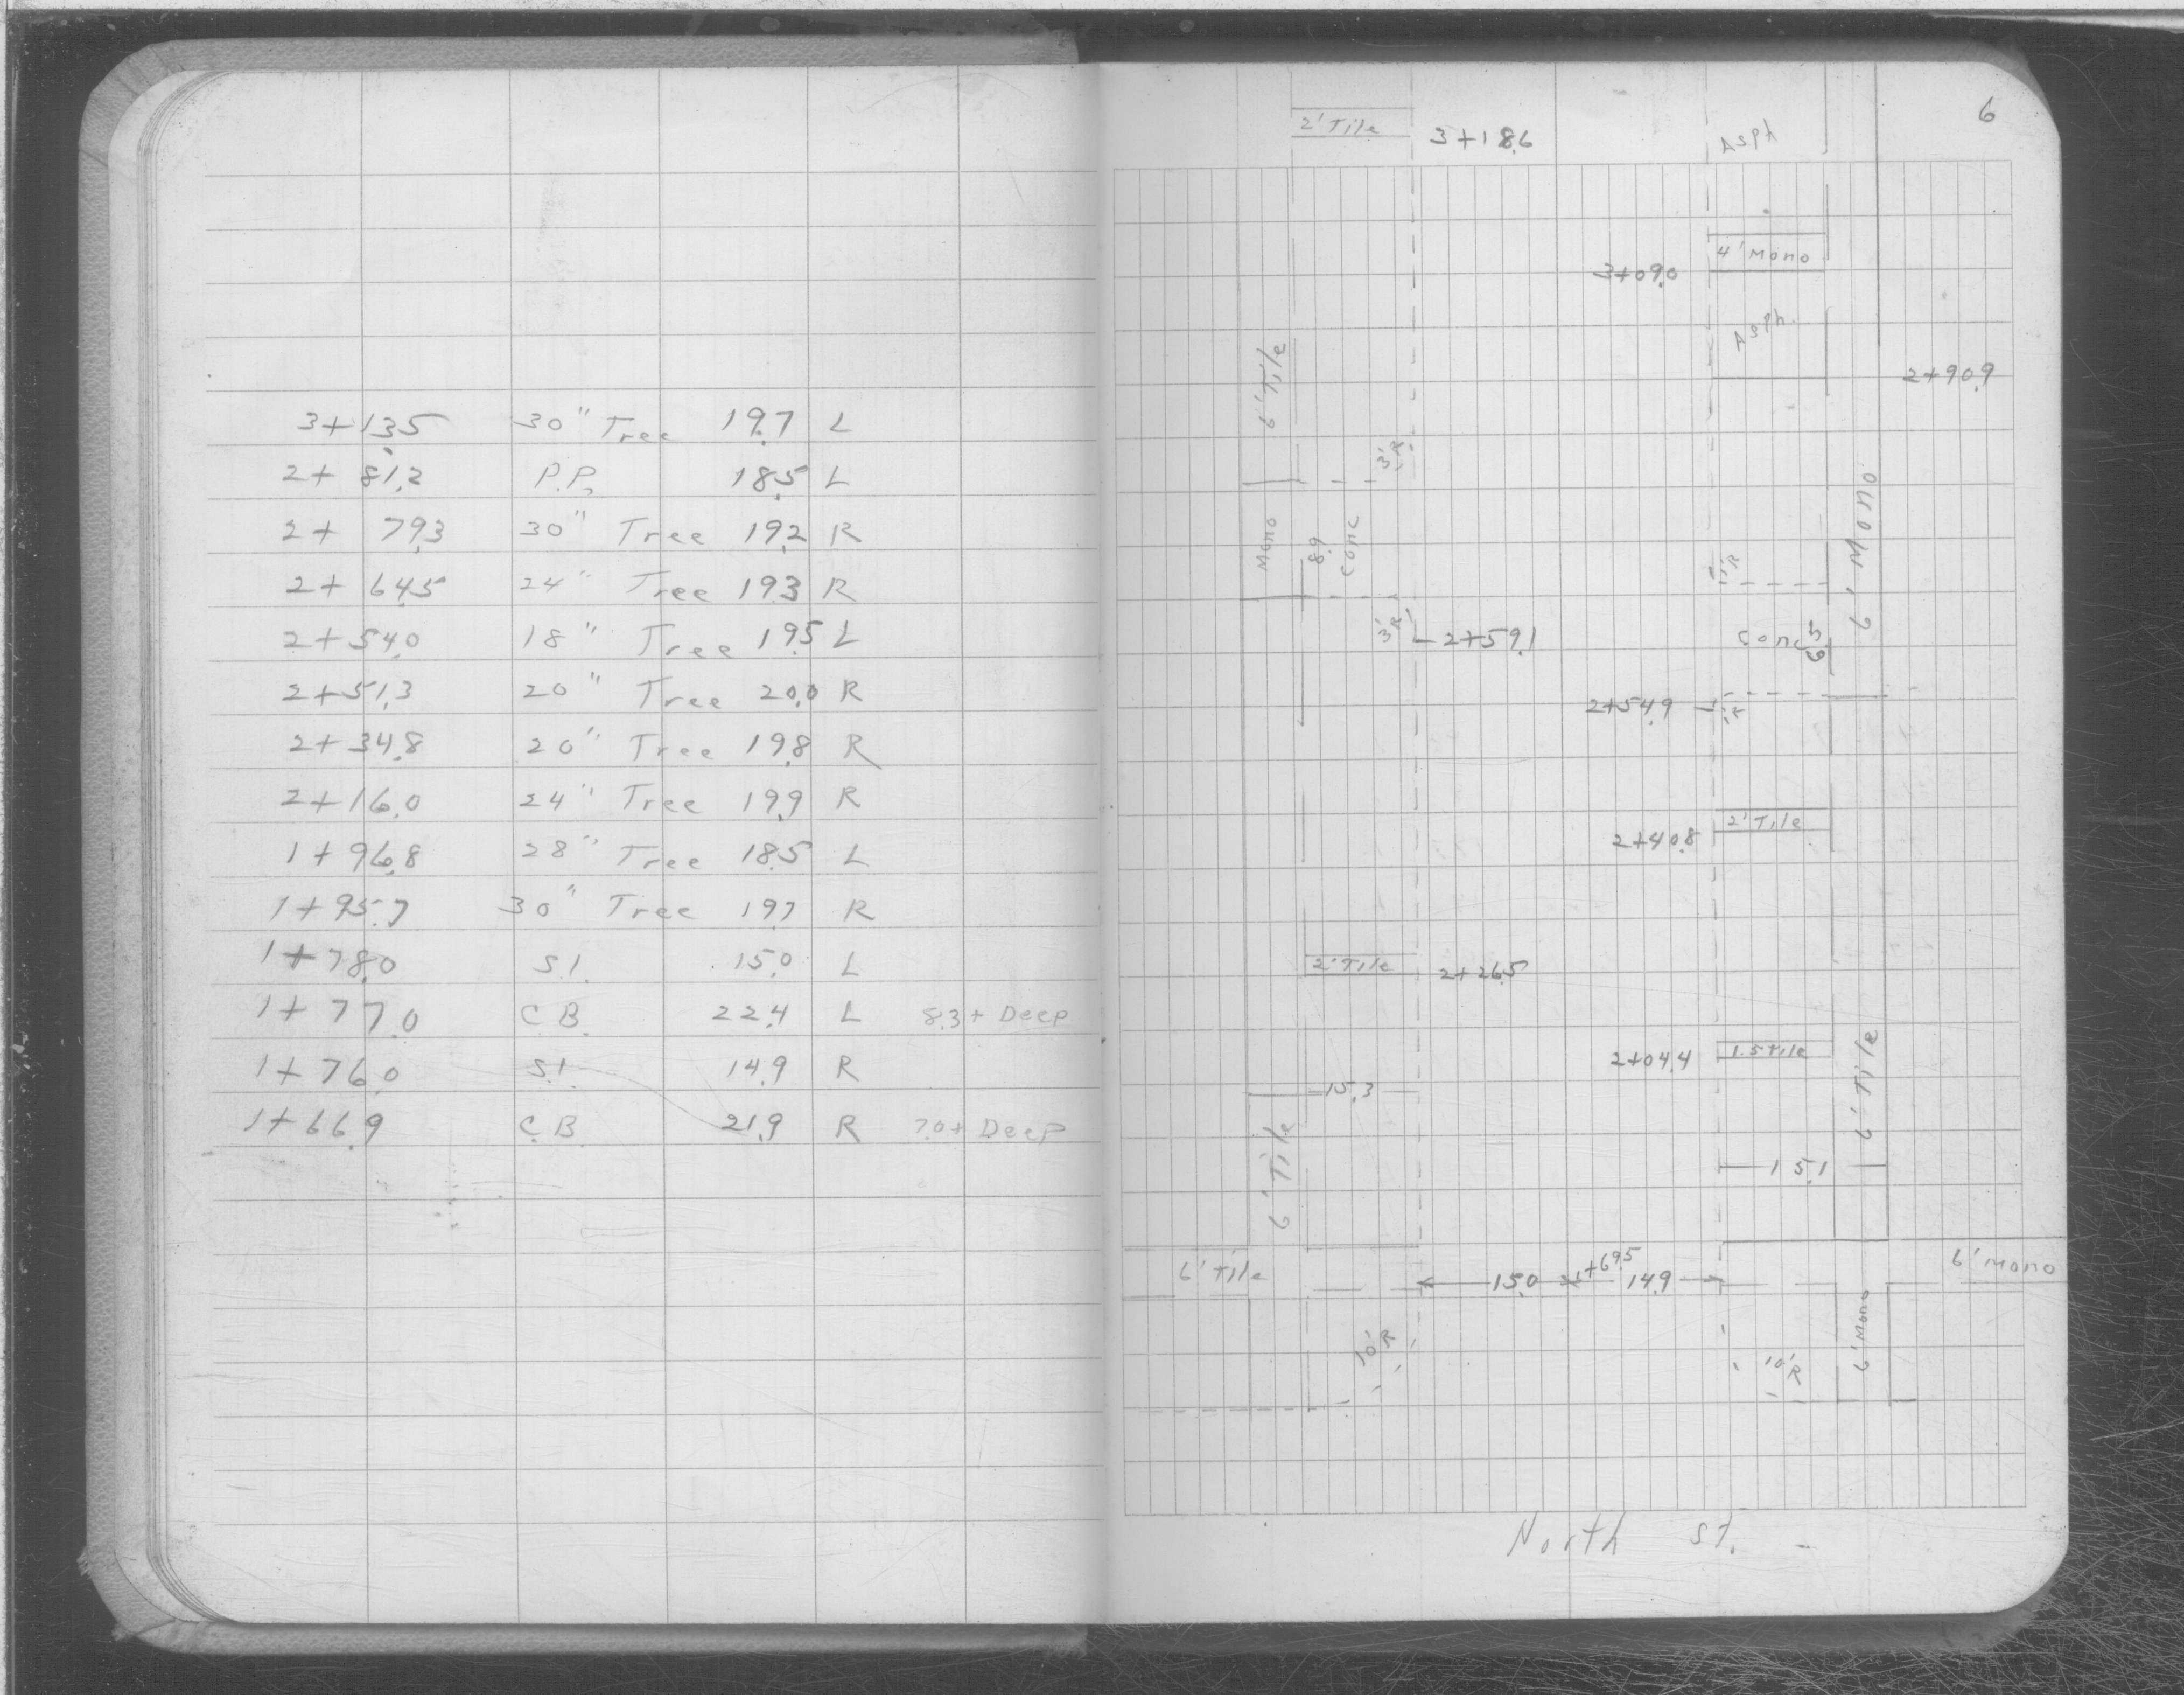 3+13.5 30" Tree 19.7 L
2+81.2 P.P. 18.5 L
2+79.3 30" Tree 19.2 R
2+64.5 24" Tree 19.3 R
2+54.0 18" Tree 19.5 L
2+51.3 20" Tree 20.0 R
2+34.8 20" Tree 19.8 R
2+16.0 24" Tree 19.9 R
1+96.8 28" Tree 18.5 L
1+95.7 30" Tree 19.7 R
1+78.0 S.I. 15.0 L
1+77.0 C.B. 22.4 L 8.3+ Deep
1+76.0 S.I. 14.9 R
1+66.9 C.B. 21.9 R 7.0+ Deep
6
2' Tile 3+18.6 Asph
4' Mono
3+09.0
Asph.
2+90.9
6' Tile
3'R
6' Mono
Mono 8.9 Conc
3'R 2+59.1
Conc
2+54.9
2' Tile
2+40.8
2' Tile 2+26.5
2+04.4 1.5 Tile
6' Tile
15.3
6' Tile
15.1
6' Tile
15.0 1+69.5 14.9
6' Mono
6' Mono
10'R
10'R
North St.